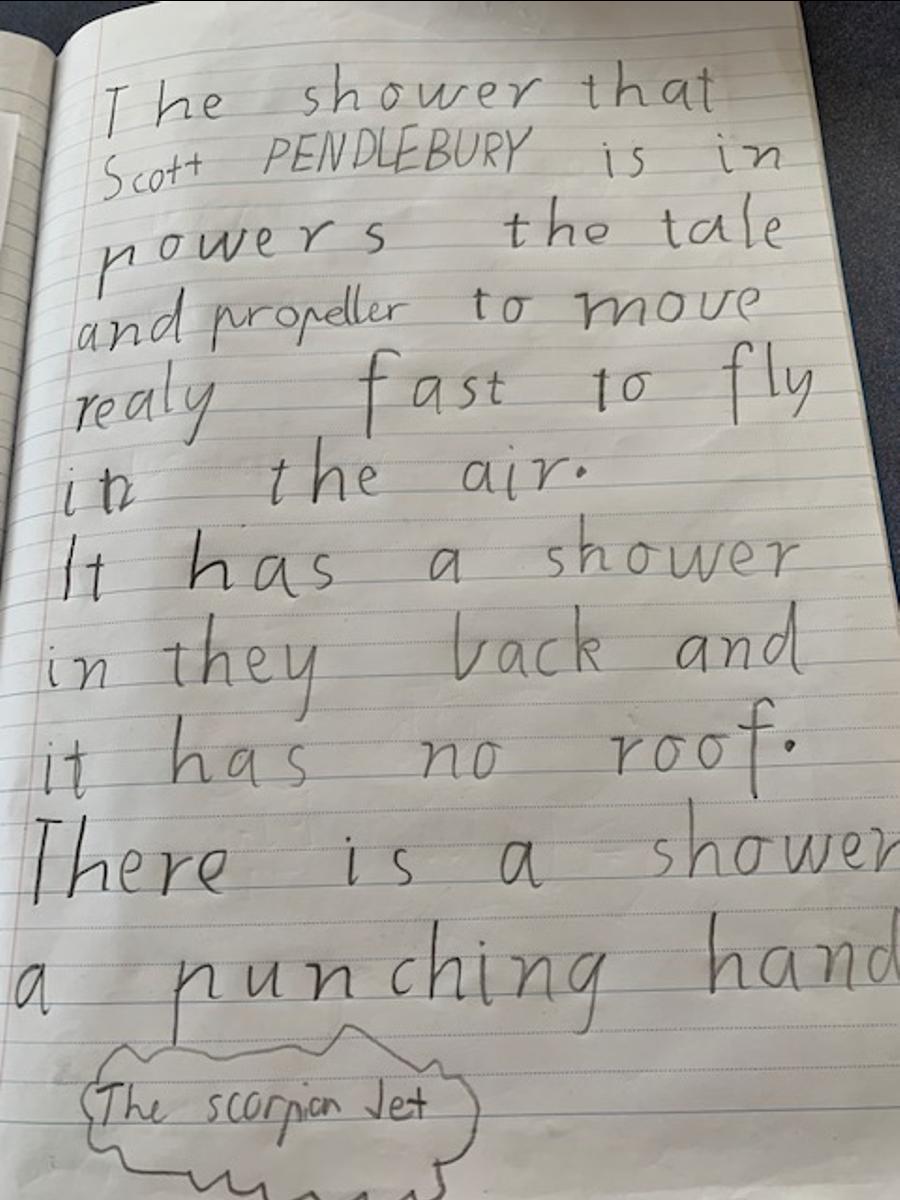 The shower that
Scott PENDLEBURY is in
powers the tale
and propeller to move
realy fast to fly
in the air.
It has a shower
in they back and
it has no roof.
There is a shower
a punching hand
The scorpion Jet